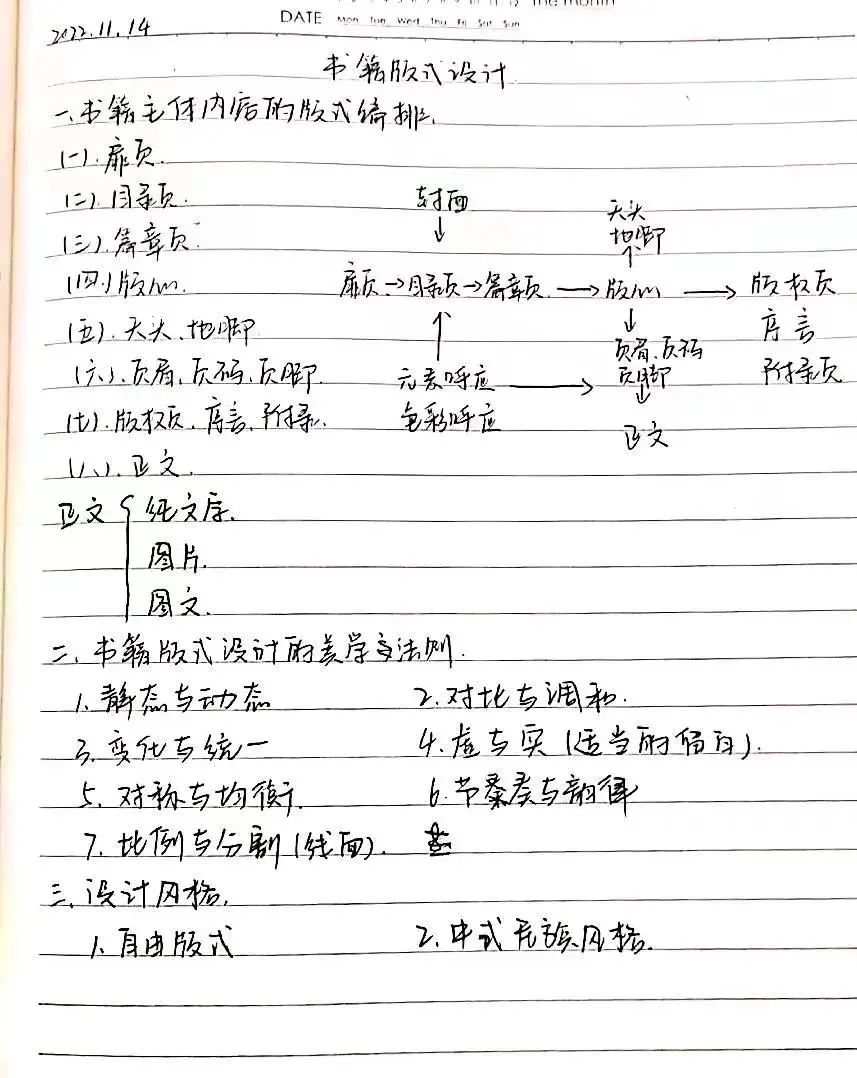 the month
DATE Mon Tue Wed Thu Fri Sat Sun
2022.11.14
书籍版式设计
一、书籍主体内容的版式编排
(一).扉页.
(二).目录页.
(三).篇章页.
(四)版心.
(五).天头、地脚
(六).页眉、页码、页脚.
(七).版权页、序言、附录.
(八).正文.
封面
↓
天头
地脚
↑
扉页→目录页→篇章页→版心→版权页
序言
附录页
↑
元素呼应→
色彩呼应
↓
页眉、页码
页脚
↓
正文
正文{纯文字.
图片.
图文.
二、书籍版式设计的美学与法则.
1.静态与动态 2.对比与调和.
3.变化与统一 4.虚与实(适当的留白).
5.对称与均衡. 6.节奏与韵律
7.比例与分割(线面).
三、设计风格.
1.自由版式 2.中式民族风格.